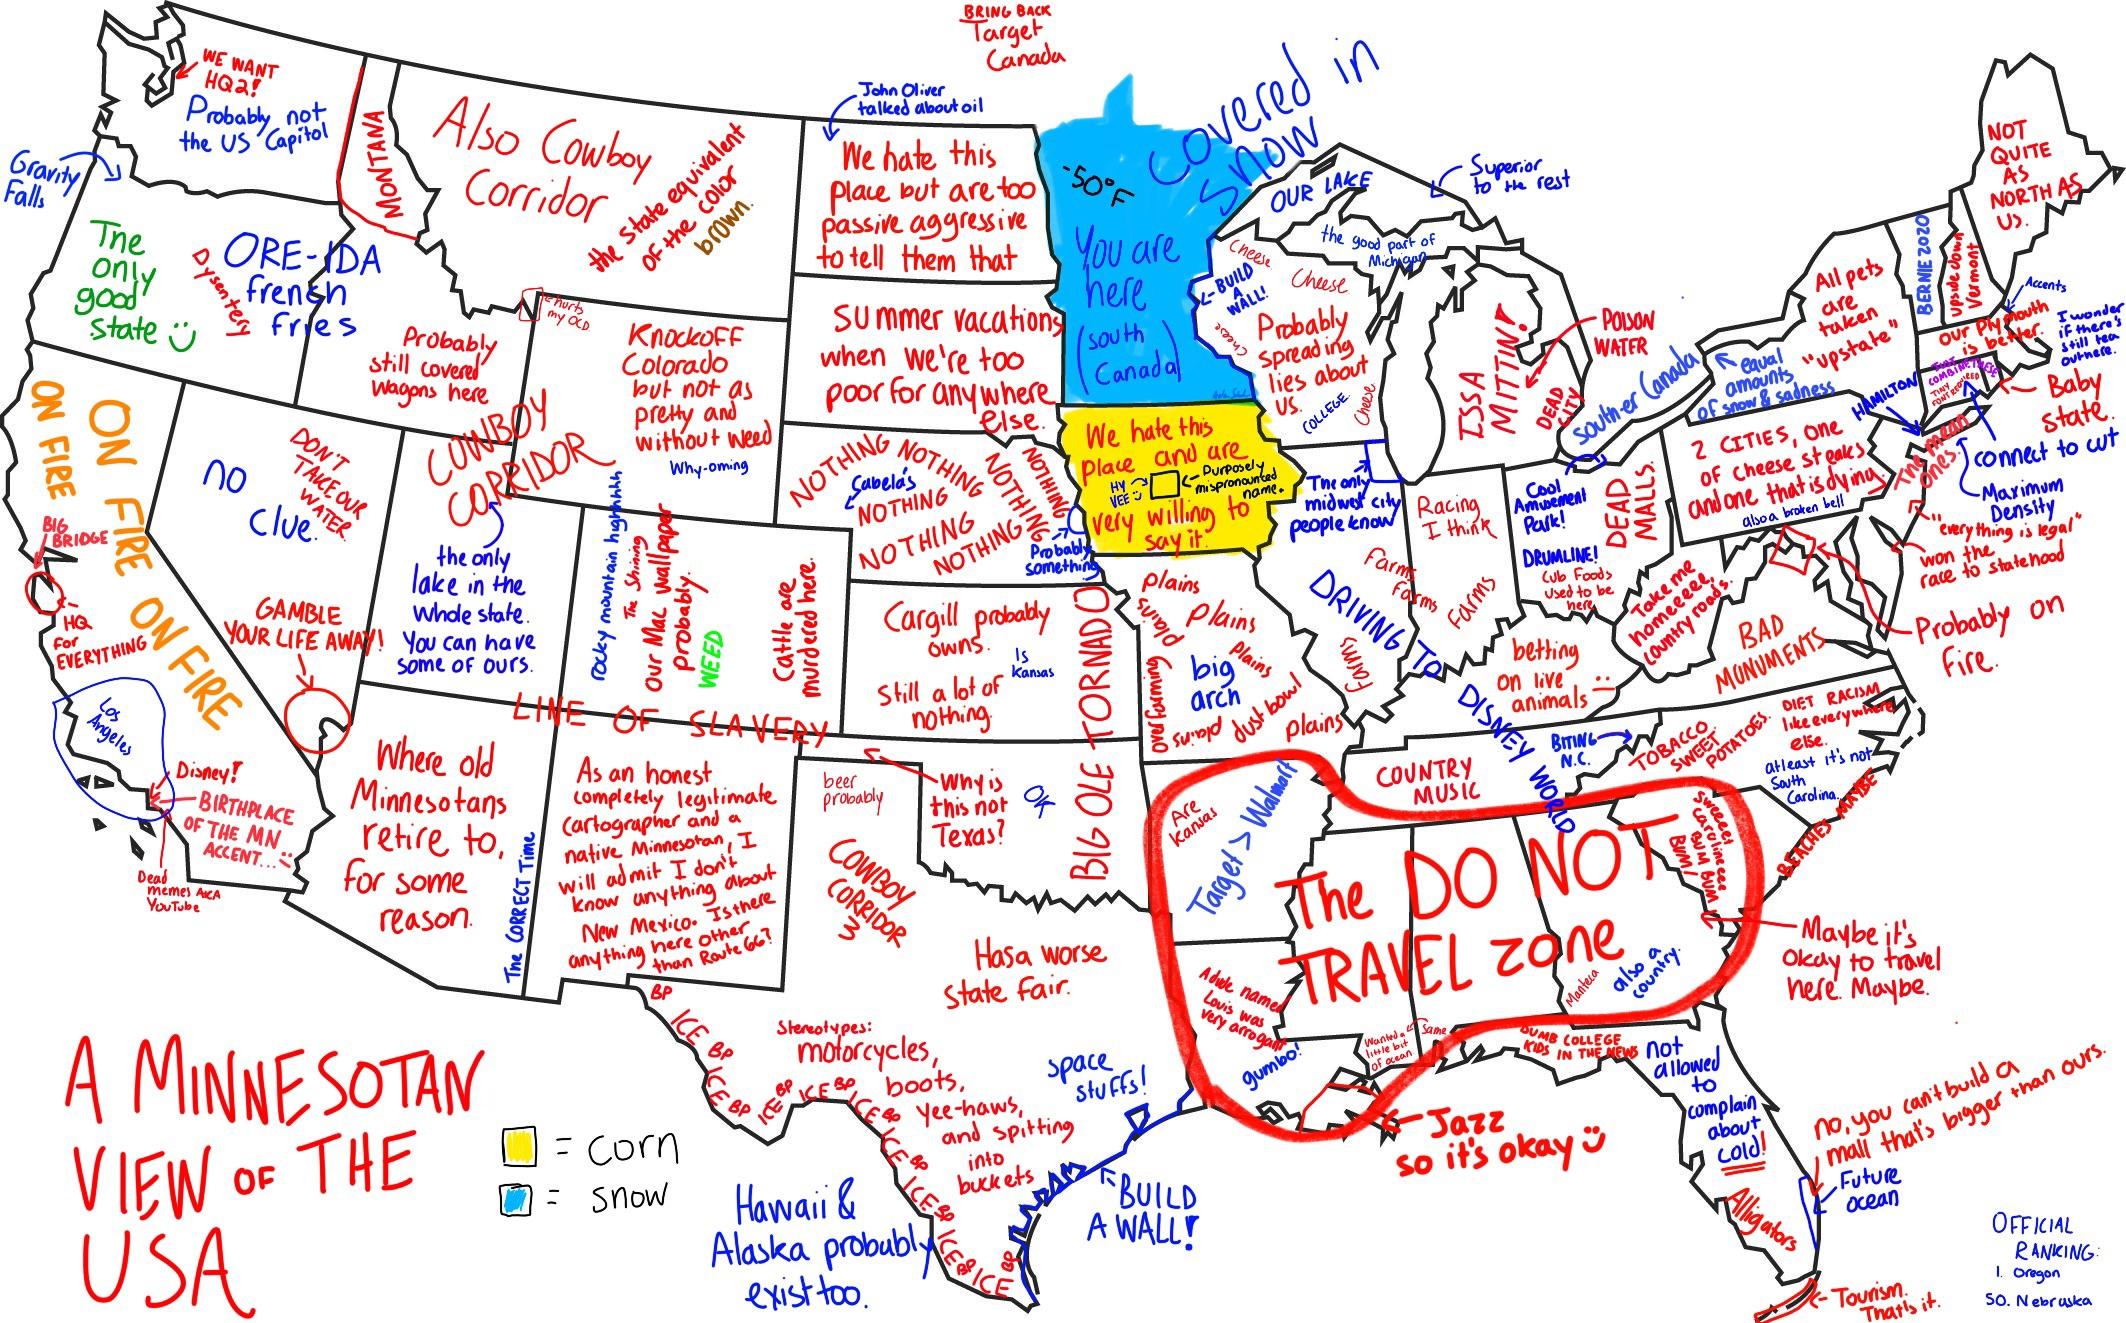 BRING BACK
Target
Canada
WE WANT
HQ2!
Probably not
the US Capitol
Gravity
Falls
MONTANA
Also Cowboy
Corridor
the state equivalent
of the color
brown.
John Oliver
talked about oil
We hate this
place but are too
passive aggressive
to tell them that
-50°F
Covered in
snow
You are
here
(south
Canada)
OUR LAKE
Superior
to the rest
the good part of
Michigan
NOT
QUITE
AS
NORTH AS
US.
BERNIE 2020
upside down
Vermont
Accents
The
only
good
state :)
Dysentery
ORE-IDA
french
fries
Probably
still covered
wagons here
hurts
my OCD
Knockoff
Colorado
but not as
pretty and
without weed
Why-oming
Summer vacations
when we're too
poor for anywhere
else.
Cheese
Cheese
Cheese
Cheese
BUILD
A
WALL!
Probably
spreading
lies about
us.
COLLEGE.
ISSA
MITTIN!
POISON
WATER
DEAD
CITY
souther Canada
equal
amounts
of snow & sadness
All pets
are
taken
"upstate"
our Plymouth
is better.
I wonder
if there's
still tea
out here.
JUST
COMBINE THESE
TINY
FONT REQUIRED
Baby
state.
connect to cut
HAMILTON
The mean
ones.
Maximum
Density
"everything is legal"
won the
race to statehood
2 CITIES, one
of cheese steaks
and one that is dying
also a broken bell
ON FIRE
ON FIRE
ON FIRE
BIG
BRIDGE
HQ
for
EVERYTHING
no
clue.
DON'T
TAKE OUR
WATER
GAMBLE
YOUR LIFE AWAY!
COWBOY
CORRIDOR
the only
lake in the
whole state.
You can have
some of ours.
rocky mountain highhhhh
The Shining
our Mac wallpaper
probably.
WEED
Cattle are
murdered here.
NOTHING NOTHING
NOTHING
NOTHING
NOTHING
NOTHING
NOTHING
Cabela's
Probably
something
We hate this
place and are
HY
VEE :)
Purposely
mispronounced
name.
very willing to
say it.
The only
midwest city
people know
DRIVING TO
DISNEY WORLD
Racing
I think
Farms
Farms
Farms
Farms
Cool
Amusement
Park!
DRUMLINE!
Cub Foods
used to be
here
DEAD
MALLS.
Take me
homeeeee,
country roads.
BAD
MONUMENTS
Probably on
fire.
betting
on live
animals :)
Cargill probably
owns.
Is
Kansas
Still a lot of
nothing.
BIG OLE TORNADO
plains
plains
plains
plains
plains
plains
big
arch
overfarming
Dust bowl
LINE OF SLAVERY
Los
Angeles
Disney!
BIRTHPLACE
OF THE MN
ACCENT... :)
Dead
memes AKA
YouTube
Where old
Minnesotans
retire to,
for some
reason.
The CORRECT Time
As an honest
completely legitimate
cartographer and a
native Minnesotan, I
will admit I don't
know anything about
New Mexico. Is there
anything here other
than Route 66?
beer
probably
Why is
this not
Texas?
OK
COWBOY
CORRIDOR
3
Has a worse
state fair.
Are
Kansas
Target > Walmart
COUNTRY
MUSIC
BITING
N.C.
TOBACCO
SWEET
POTATOES.
DIET RACISM
like everywhere
else.
at least it's not
South
Carolina.
BEACHES MAYBE
Sweeeet
Carolineeee
BUM BUM
BUM!
The DO NOT
TRAVEL zone
Maybe it's
Okay to travel
here. Maybe.
also a
country.
Manteca
A dude named
Louis was
very arrogant
gumbo!
Wanted a
little bit
of ocean
Same
DUMB COLLEGE
KIDS IN THE NEWS
Jazz
so it's okay :)
not
allowed
to
complain
about
cold!
Alligators
no, you can't build a
mall that's bigger than ours.
Future
ocean
Tourism.
That's it.
Stereotypes:
motorcycles,
boots,
yee-haws,
and spitting
into
buckets
space
stuffs!
BUILD
A WALL!
BP
ICE
BP
ICE
BP
ICE
BP
ICE
BP
ICE
BP
ICE
BP
ICE
BP
ICE
BP
ICE
BP
A MINNESOTAN
VIEW OF THE
USA
= corn
= snow
Hawaii &
Alaska probably
exist too.
OFFICIAL
RANKING:
1. Oregon
50. Nebraska